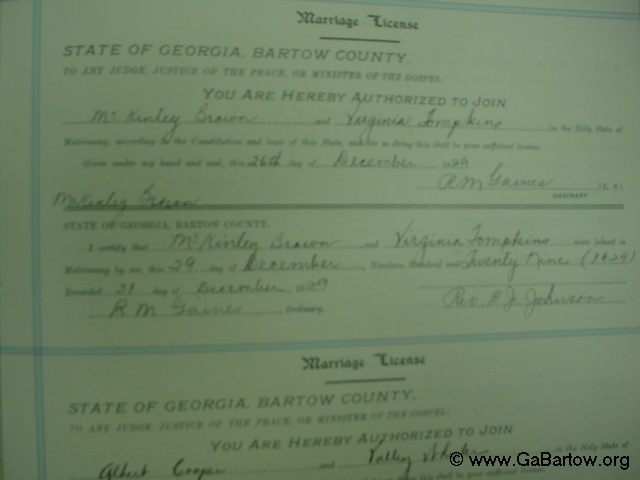 Marriage License
STATE OF GEORGIA, BARTOW COUNTY.
TO ANY JUDGE, JUSTICE OF THE PEACE, OR MINISTER OF THE GOSPEL:
YOU ARE HEREBY AUTHORIZED TO JOIN
McKinley Brown and Virginia Tompkins in the Holy State of
Matrimony, according to the Constitution and laws of this State, and for so doing this shall be your sufficient license.
Given under my hand and seal, this 26th day of December 1929
R M Gaines (L. S.)
ORDINARY
McKinley Brown
STATE OF GEORGIA, BARTOW COUNTY.
I certify that McKinley Brown and Virginia Tompkins were joined in
Matrimony by me, this 29 day of December, Nineteen Hundred and Twenty Nine (1929)
Recorded 31 day of December 1929
Rev. H. J. Johnson
R M Gaines, Ordinary.
Marriage License
STATE OF GEORGIA, BARTOW COUNTY.
TO ANY JUDGE, JUSTICE OF THE PEACE, OR MINISTER OF THE GOSPEL:
YOU ARE HEREBY AUTHORIZED TO JOIN
Albert Cooper and in the Holy State of
© www.GaBartow.org